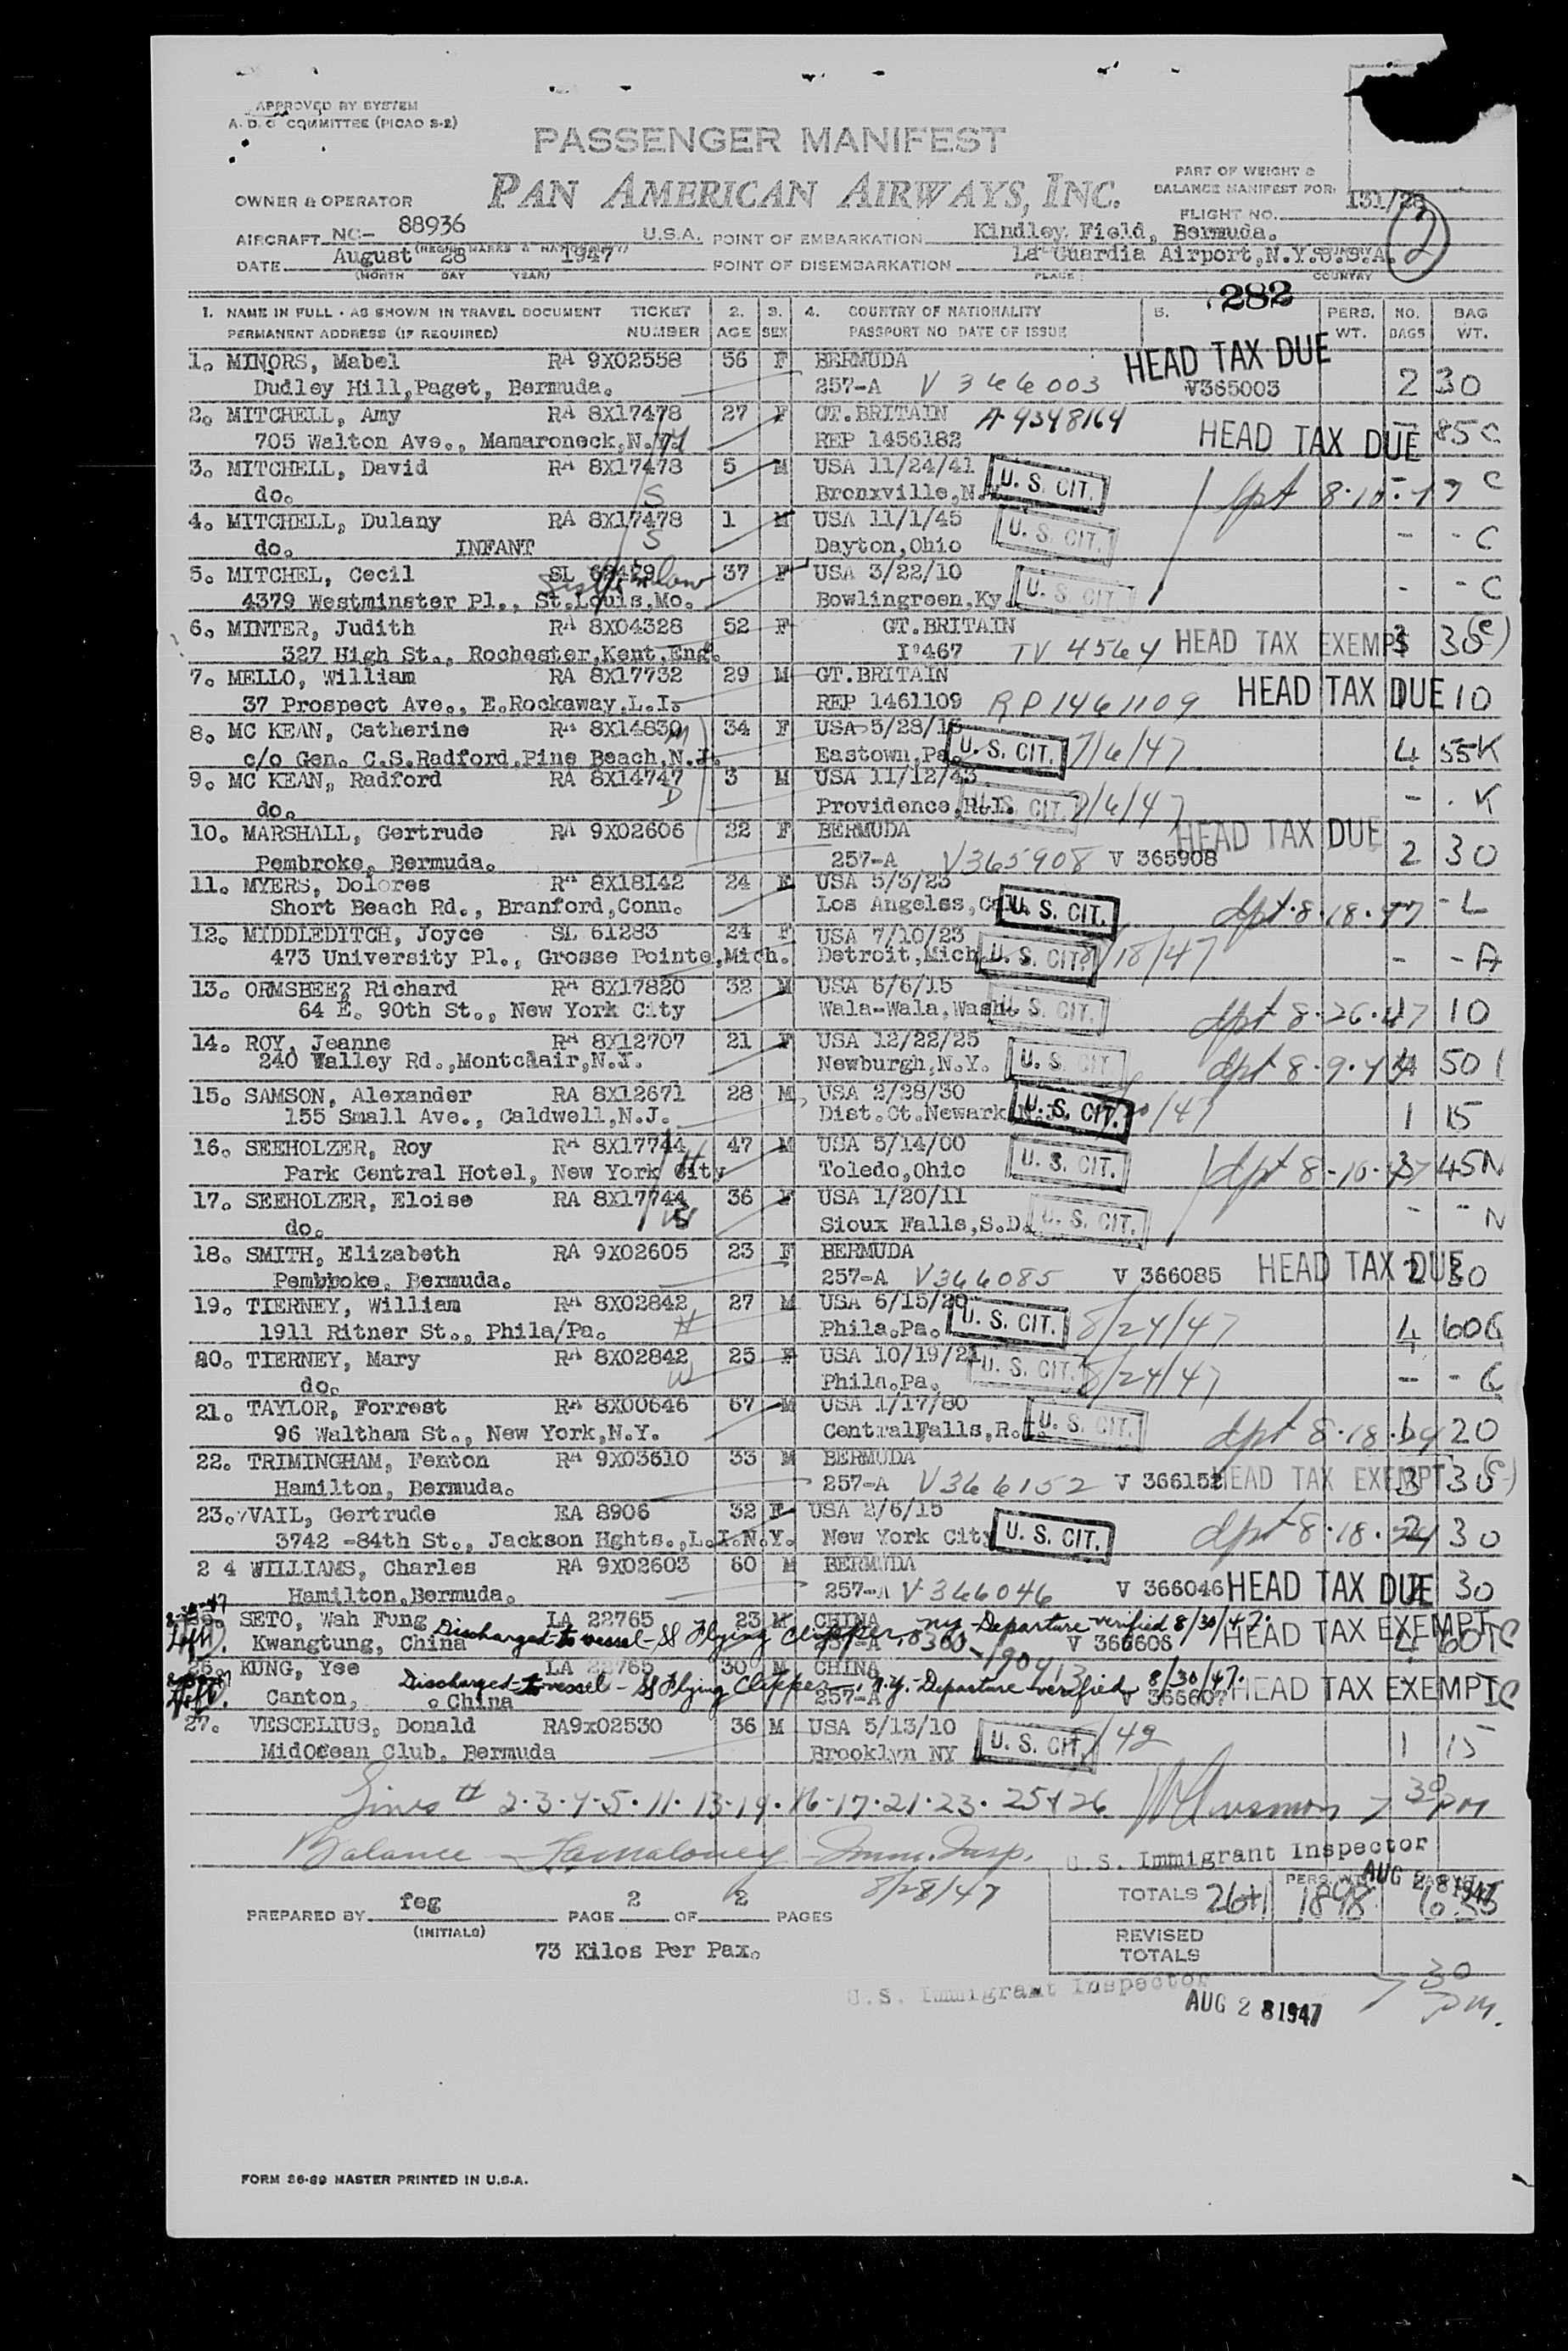 APPROVED BY SYSTEM
A. D. C COMMITTEE (PICAO S-2)
PASSENGER MANIFEST
PAN AMERICAN AIRWAYS, INC.
PART OF WEIGHT &
BALANCE MANIFEST FOR:
OWNER & OPERATOR
FLIGHT NO. 131/28
AIRCRAFT NC- 88936 U.S.A. POINT OF EMBARKATION Kindley Field, Bermuda.
2
DATE August 28 1947 POINT OF DISEMBARKATION La Guardia Airport,N.Y.U.S.A.
(MONTH DAY YEAR) PLACE COUNTRY
282
1. NAME IN FULL - AS SHOWN IN TRAVEL DOCUMENT TICKET 2. 3. 4. COUNTRY OF NATIONALITY 5. PERS. NO. BAG
PERMANENT ADDRESS (IF REQUIRED) NUMBER AGE SEX PASSPORT NO DATE OF ISSUE WT. BAGS WT.
1. MINORS, Mabel RA 9X02558 56 F BERMUDA HEAD TAX DUE
Dudley Hill,Paget, Bermuda. 257-A V 366003 V365003 2 30
2. MITCHELL, Amy RA 8X17478 27 F GT.BRITAIN A 4348164
705 Walton Ave., Mamaroneck,N.Y. REP 1456182 HEAD TAX DUE 85 C
3. MITCHELL, David RA 8X17478 5 M USA 11/24/41 U. S. CIT.
do. S Bronxville,N.Y. dpt 8-10-47 C
4. MITCHELL, Dulany RA 8X17478 1 M USA 11/1/45 U. S. CIT.
do. INFANT S Dayton,Ohio - - C
5. MITCHEL, Cecil SL 37 F USA 3/22/10 U. S. CIT.
4379 Westminster Pl., St.Louis,Mo. Bowlingreen,Ky. - - C
6. MINTER, Judith RA 8X04328 52 F GT.BRITAIN
327 High St., Rochester,Kent,Eng. I°467 TV 4564 HEAD TAX EXEMPT 30
7. MELLO, William RA 8X17732 29 M GT.BRITAIN
37 Prospect Ave., E.Rockaway,L.I. REP 1461109 RP 1461109 HEAD TAX DUE 10
8. MC KEAN, Catherine RA 8X14830 34 F USA 5/28/13
c/o Gen. C.S.Radford,Pine Beach,N.J. Eastown,Pa. U. S. CIT. 7/6/47 4 55K
9. MC KEAN, Radford RA 8X14747 3 M USA 11/12/43
do. D Providence,R.I. U. S. CIT. 7/6/47 - - K
10. MARSHALL, Gertrude RA 9X02606 22 F BERMUDA HEAD TAX DUE
Pembroke, Bermuda. 257-A V365908 V 365908 2 30
11. MYERS, Dolores RA 8X18142 24 F USA 5/3/23
Short Beach Rd., Branford,Conn. Los Angelss,Cal. U. S. CIT. dpt. 8.18.47 - L
12. MIDDLEDITCH, Joyce SL 61283 24 F USA 7/10/23
473 University Pl., Grosse Pointe,Mich. Detroit,Mich. U. S. CIT. 8/18/47 - - A
13. ORMSBEE? Richard RA 8X17820 32 M USA 6/6/15
64 E. 90th St., New York City Wala-Wala,Wash. U. S. CIT. dpt 8.26.47 10
14. ROY, Jeanne RA 8X12707 21 F USA 12/22/25
240 Walley Rd.,Montclair,N.J. Newburgh,N.Y. U. S. CIT. dpt 8.9.47 50
15. SAMSON, Alexander RA 8X12671 28 M USA 2/28/30
155 Small Ave., Caldwell,N.J. Dist.Ct.Newark,N.J. U. S. CIT. 1 15
16. SEEHOLZER, Roy RA 8X17744 47 M USA 5/14/00
Park Central Hotel, New York City H Toledo,Ohio U. S. CIT. dpt 8-10-47 45N
17. SEEHOLZER, Eloise RA 8X17744 36 F USA 1/20/11
do. W Sioux Falls,S.D. U. S. CIT. - - N
18. SMITH, Elizabeth RA 9X02605 23 F BERMUDA
Pembroke, Bermuda. 257-A V366085 V 366085 HEAD TAX DUE 2 30
19. TIERNEY, William RA 8X02842 27 M USA 6/15/20
1911 Ritner St., Phila/Pa. H Phila.Pa. U. S. CIT. 8/24/47 4 60
20. TIERNEY, Mary RA 8X02842 25 F USA 10/19/21
do. W Phila.Pa. U. S. CIT. 8/24/47 - -
21. TAYLOR, Forrest RA 8X00646 67 M USA 1/17/80
96 Waltham St., New York,N.Y. CentralFalls,R.I. U. S. CIT. dpt 8.18. 20
22. TRIMINGHAM, Fenton RA 9X03610 33 M BERMUDA
Hamilton, Bermuda. 257-A V366152 V 366152 HEAD TAX EXEMPT 3 30
23. VAIL, Gertrude EA 8906 32 F USA 2/6/15
3742 -84th St., Jackson Hghts.,L.I.N.Y. New York City U. S. CIT. dpt 8.18. 2 30
2 4 WILLIAMS, Charles RA 9X02603 60 M BERMUDA
Hamilton,Bermuda. 257-A V 366046 V 366046 HEAD TAX DUE 30
25. SETO, Wah Fung LA 22765 23 M CHINA
Discharged to vessel - SS Flying Clipper - NY - Departure verified 8/30/47.
Kwangtung, China V 366606 HEAD TAX EXEMPT 4 60
26. KUNG, Yee LA 22765 30 M CHINA
Discharged to vessel - SS Flying Clipper, N.Y. - Departure verified 8/30/47.
Canton, China 257-A V 366607 HEAD TAX EXEMPT
27. VESCELIUS, Donald RA9x02530 36 M USA 5/13/10
MidOcean Club, Bermuda Brooklyn NY U. S. CIT. 1 15
Lines # 2.3.4.5.11.13.14.16-17.21.23.25 & 26 7 30 PM
Balance Imm. Insp. U.S. Immigrant Inspector
8/28/47 AUG 28 1947
PREPARED BY feg PAGE 2 OF 2 PAGES TOTALS 26+1 1898
(INITIALS) REVISED TOTALS
73 Kilos Per Pax.
U.S. Immigrant Inspector
AUG 28 1947 7 30 PM.
FORM 26-89 MASTER PRINTED IN U.S.A.